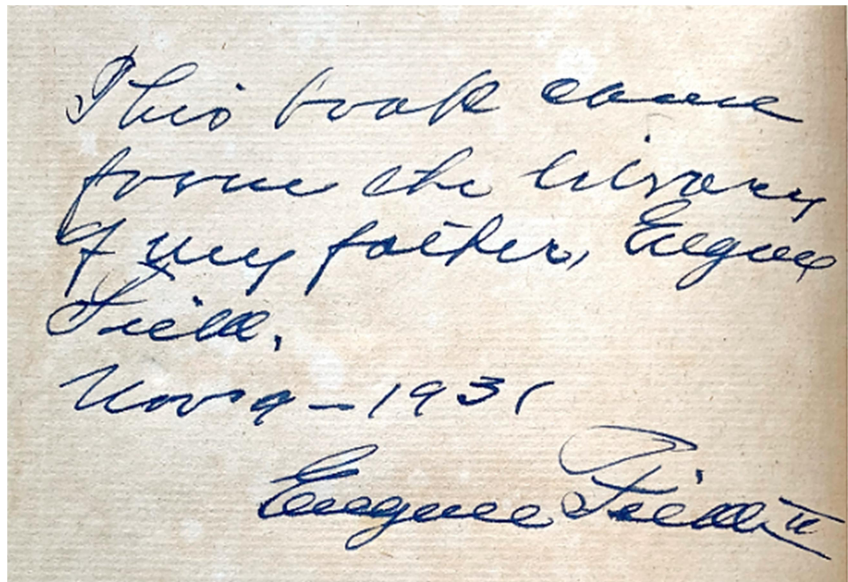 This book came
from the library
of my father, Eugene
Field.
Nov 9 - 1931
Eugene Field II